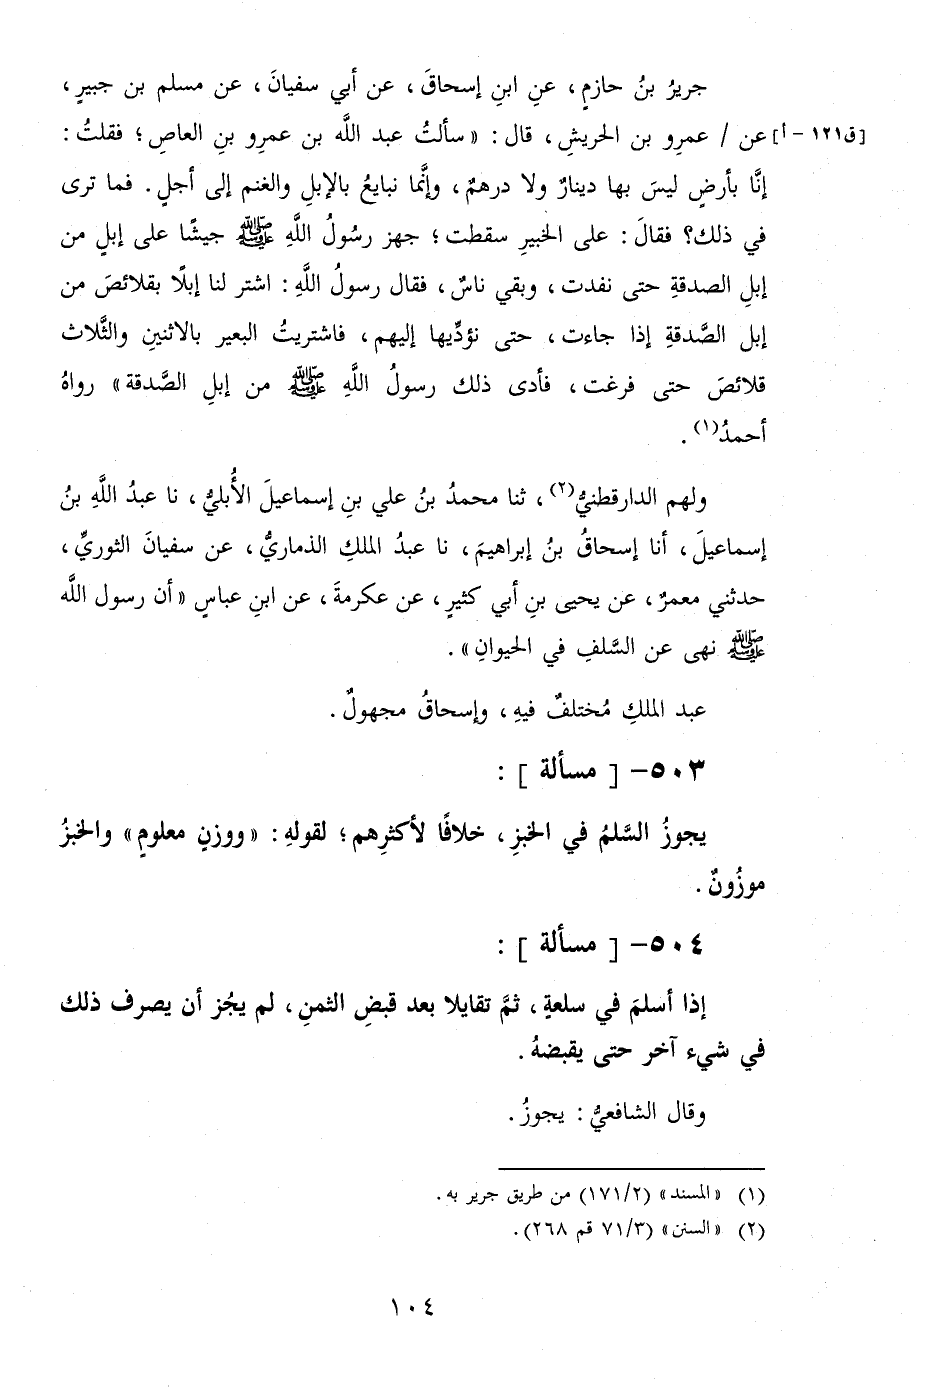 جريرُ بنُ حازمٍ ، عنِ ابنِ إسحاقَ ، عن أبي سفيانَ ، عن مسلم بن جبيرٍ ،
[ق١٢١ - أ] عن / عمرِو بن الحريشِ ، قال : « سألتُ عبد اللَّه بن عمرِو بنِ العاصِ ؛ فقلتُ :
إنَّا بأرضٍ ليسَ بها دينارٌ ولا درهمٌ ، وإنَّما نبايعُ بالإبلِ والغنم إلى أجلٍ . فما ترى
في ذلك؟ فقالَ : على الخبيرِ سقطت ؛ جهز رسُولُ اللَّهِ ﷺ جيشًا على إبلٍ من
إبلِ الصدقةِ حتى نفدت ، وبقي ناسٌ ، فقال رسولُ اللَّهِ : اشتر لنا إبلًا بقلائصَ من
إبل الصَّدقةِ إذا جاءت ، حتى نؤدِّيها إليهم ، فاشتريتُ البعير بالاثنينِ والثَّلاث
قلائصَ حتى فرغت ، فأدى ذلك رسولُ اللَّهِ ﷺ من إبلِ الصَّدقة » رواهُ
أحمدُ(١) .
ولهم الدارقطنيُّ(٢) ، ثنا محمدُ بنُ علي بنِ إسماعيلَ الأُبليُّ ، نا عبدُ اللَّهِ بنُ
إسماعيلَ ، أنا إسحاقُ بنُ إبراهيمَ ، نا عبدُ الملكِ الذماريُّ ، عن سفيانَ الثوريِّ ،
حدثني معمرٌ ، عن يحيى بنِ أبي كثيرٍ ، عن عكرمةَ ، عن ابنِ عباسٍ « أن رسول اللَّه
ﷺ نهى عن السَّلفِ في الحيوانِ » .
عبد الملكِ مُختلفٌ فيهِ ، وإسحاقُ مجهولٌ .
٥٠٣- [ مسألة ] :
يجوزُ السَّلمُ في الخبزِ ، خلافًا لأكثرِهم ؛ لقولهِ : « ووزنٍ معلومٍ » والخبزُ
موزُونٌ .
٥٠٤- [ مسألة ] :
إذا أسلمَ في سلعةٍ ، ثمَّ تقايلا بعد قبضِ الثمنِ ، لم يجُز أن يصرف ذلك
في شيء آخر حتى يقبضهُ .
وقال الشافعيُّ : يجوزُ .
(١) « المسند » (١٧١/٢) من طريق جرير به .
(٢) « السنن » (٧١/٣ قم ٢٦٨) .
١٠٤